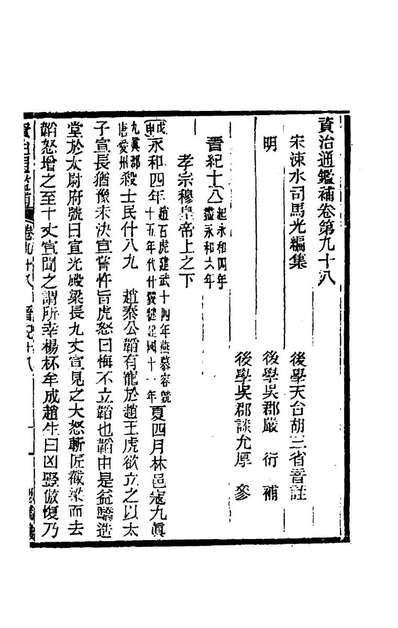 資治通鑑補卷第九十八
宋涑水司馬光編集
後學天台胡三省音註
明
後學吳郡嚴衍補
後學吳郡談允厚參
晉紀十八起永和四年盡永和六年
孝宗穆皇帝上之下
戊申永和四年趙石虎建武十四年燕慕容皝十五年代什翼犍建國十一年夏四月林邑寇九眞
九眞郡唐愛州殺士民什八九　趙秦公韜有寵於趙王虎欲立之以太
子宣長猶豫未決宣嘗忤旨虎怒曰悔不立韜也韜由是益驕造
堂於太尉府號曰宣光殿梁長九丈宣見之大怒斬匠截梁而去
韜怒增之至十丈宣聞之謂所幸楊柸牟成趙生曰凶豎傲愎乃